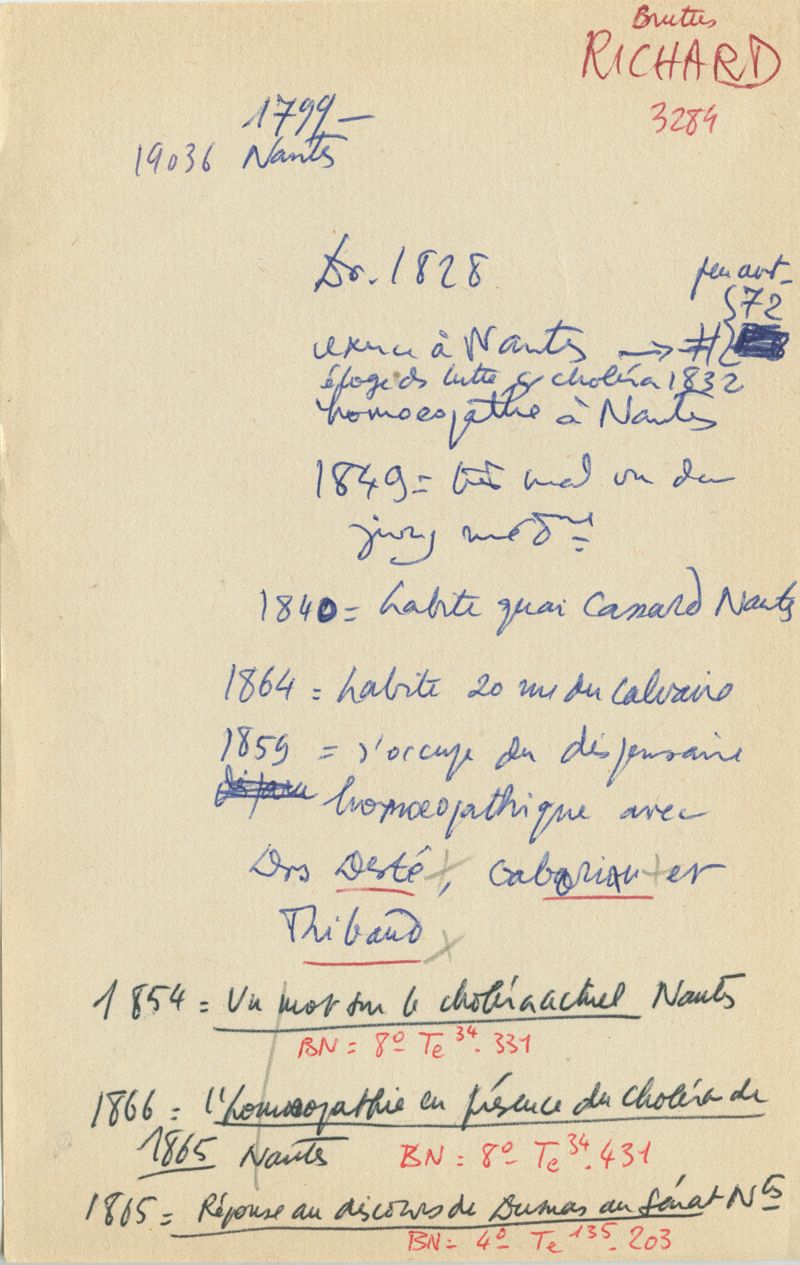 Bruttus
RICHARD
3284
1799 –
19036 Nantes
Dr. 1828
peu avt
72
exerce à Nantes → #
éloge ds lutte c/ choléra 1832
homoeopathe à Nantes
1849 = très mal vu du
jury médnal
1840 = habite quai Cassard Nantes
1864 = habite 20 rue du Calvaire
1859 = s'occupe du dispensaire
homœopathique avec
Drs Desté, Gaboriau et
Thibaud
1854 = Un mot sur le choléra actuel Nantes
BN = 8º Te 34. 331
1866 = l'homœopathie en présence du choléra de
1865 Nantes
BN = 8º Te 34. 431
1865 = Réponse au discours de Dumas au Sénat Nts
BN = 4º Te 135. 203